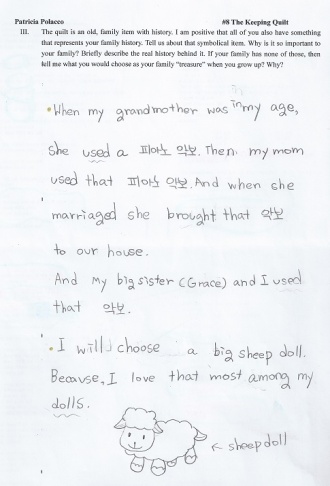 Patricia Polacco #8 The Keeping Quilt
III. The quilt is an old, family item with history. I am positive that all of you also have something
that represents your family history. Tell us about that symbolical item. Why is it so important to
your family? Briefly describe the real history behind it. If your family has none of those, then
tell me what you would choose as your family "treasure" when you grow up? Why?
• When my grandmother was in my age,
she used a 피아노 악보. Then, my mom
used that 피아노 악보. And when she
marriaged she brought that 악보
to our house.
And my big sister (Grace) and I used
that 악보.
• I will choose a big sheep doll.
Because, I love that most among my
dolls.
← sheep doll